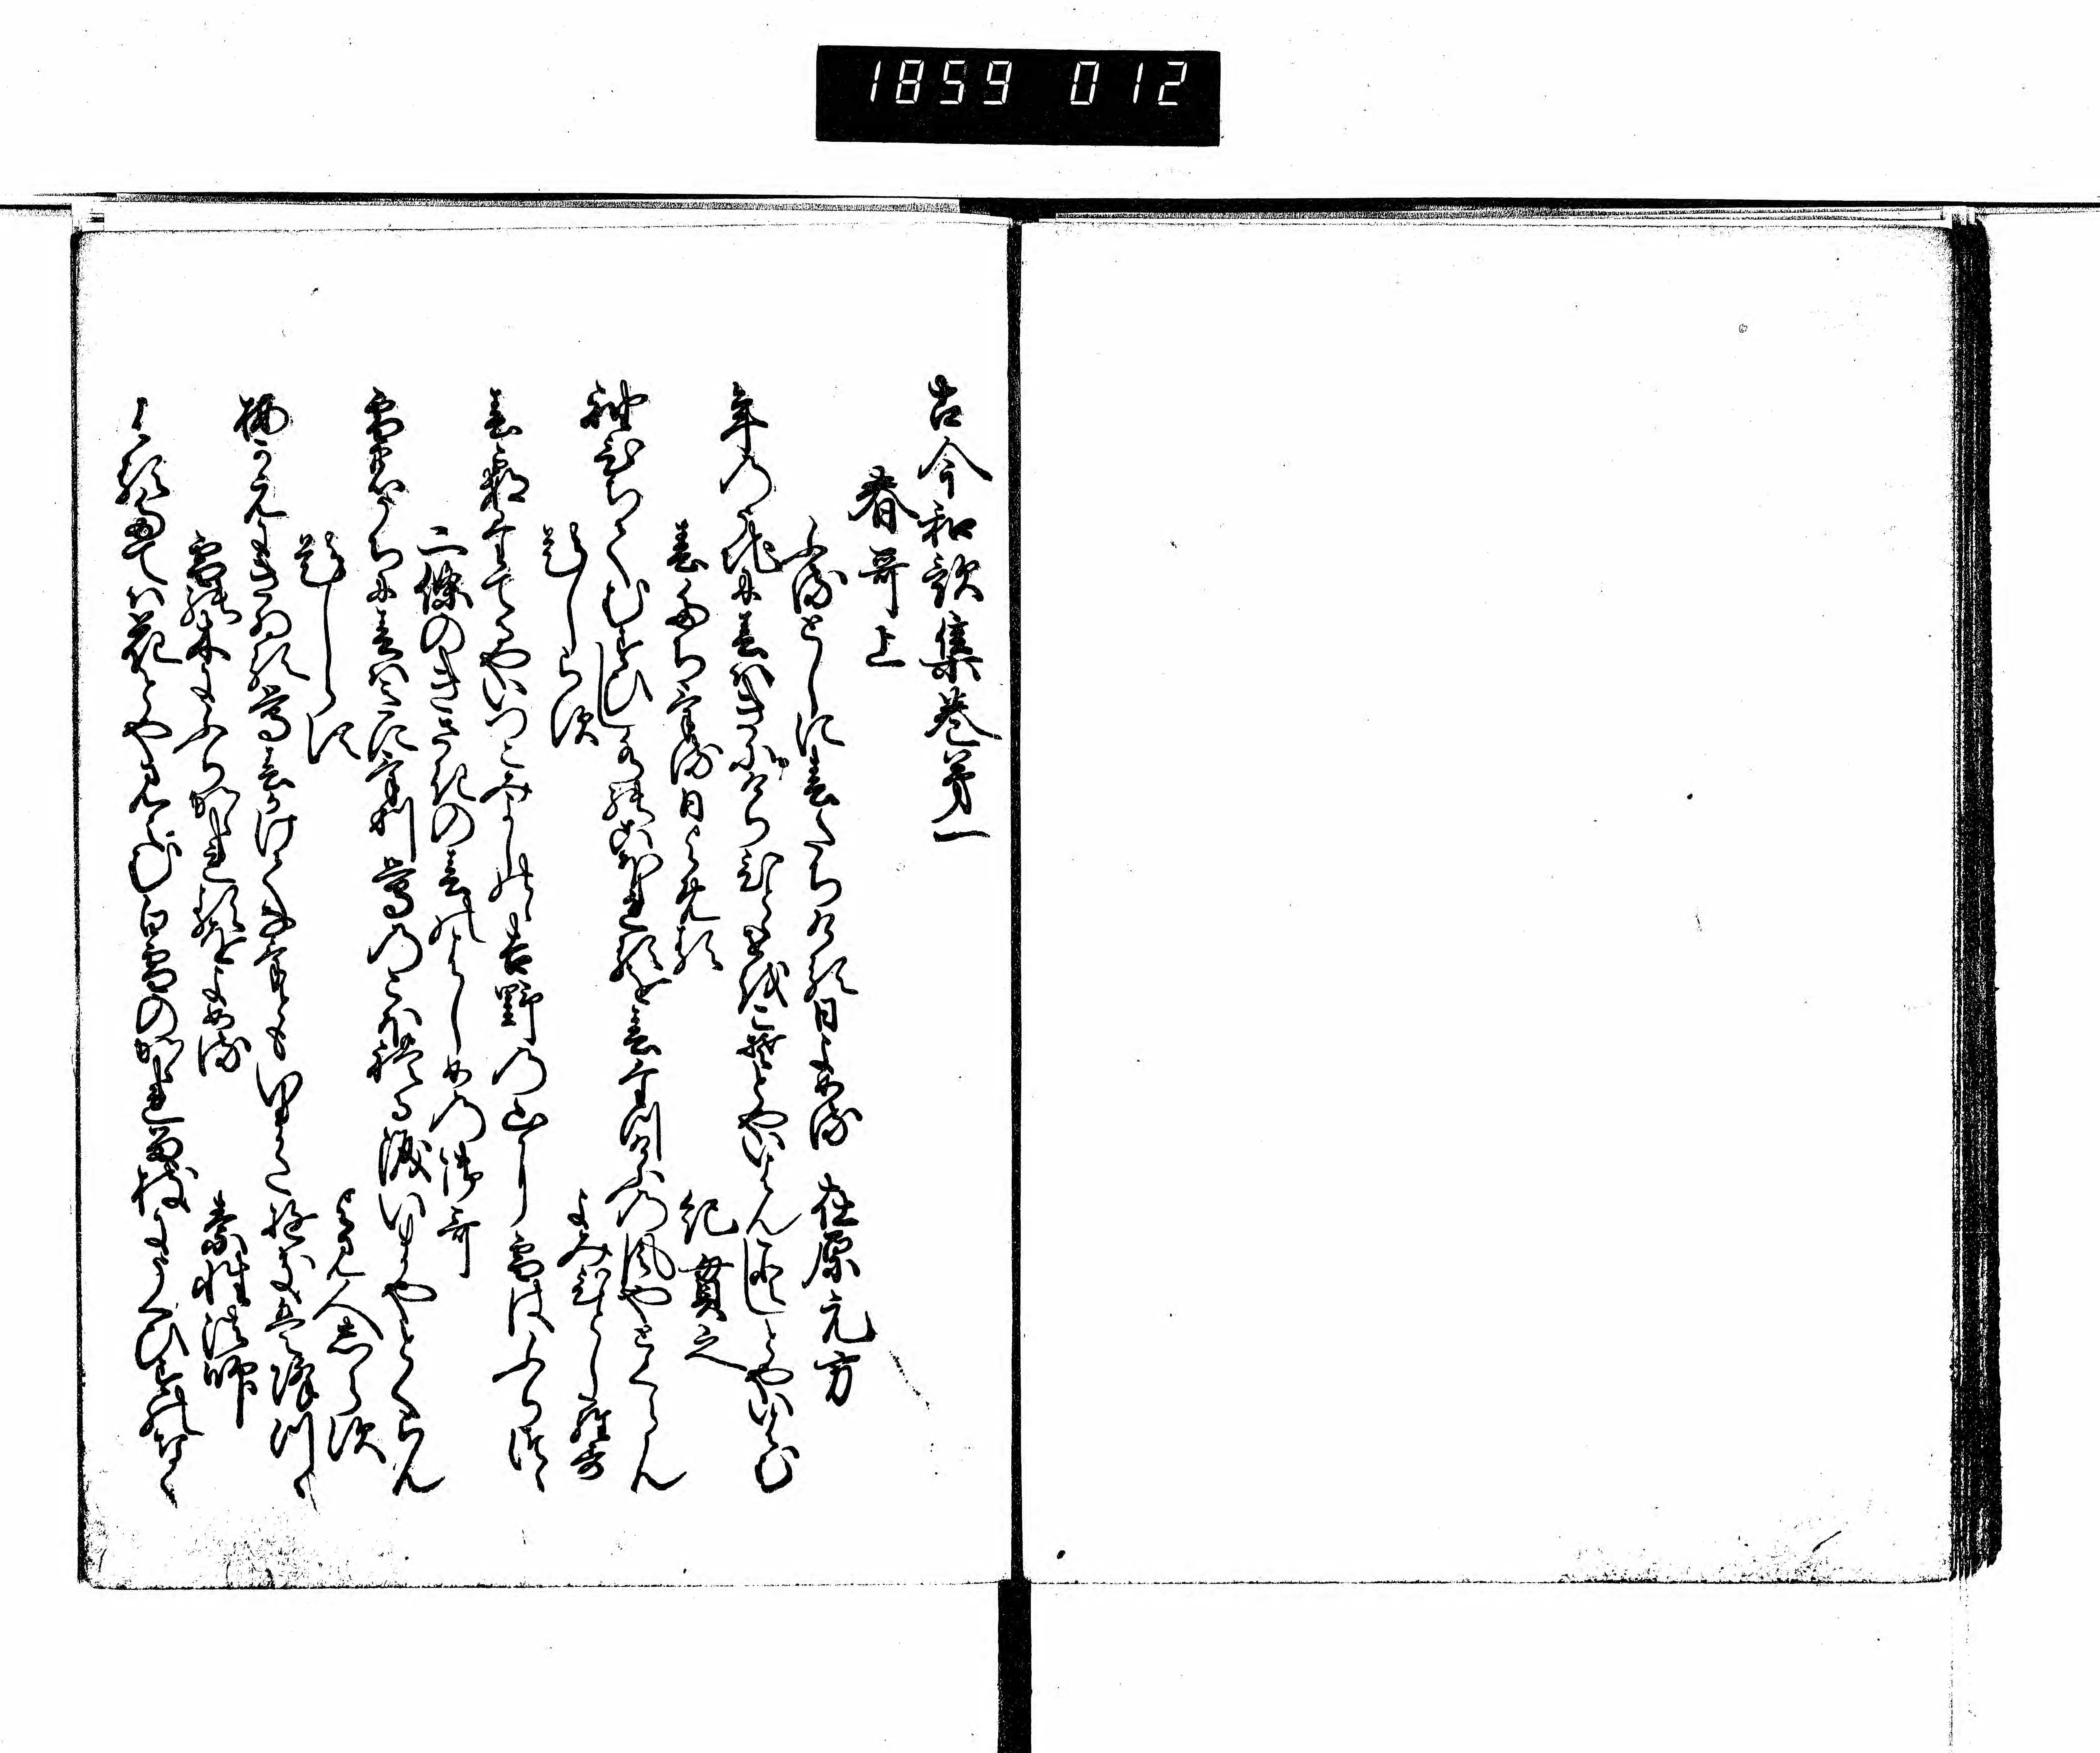 1859 012
古今和歌集巻第一
春哥上
ふるとしに春たちける日よめる 在原元方
年の内に春はきにけりひとゝせをこそとやいはんことしとやいはむ
春たちける日よめる 紀貫之
袖ひちてむすひし水のこほれるを春たつけふの風やとくらん
題しらす よみひとしらす
春霞たてるやいつこみよしのゝ吉野の山に雪はふりつゝ
二條のきさきの春のはしめの御哥
雪のうちに春はきにけり鶯のこほれる涙いまやとくらん
題しらす よみ人しらす
梅かえにきゐる鶯春かけてなけともいまた雪は降つゝ
雪の木にふりかゝれるをよめる 素性法師
春たては花とやみらむ白雪のかゝれる枝にうくひすのなく